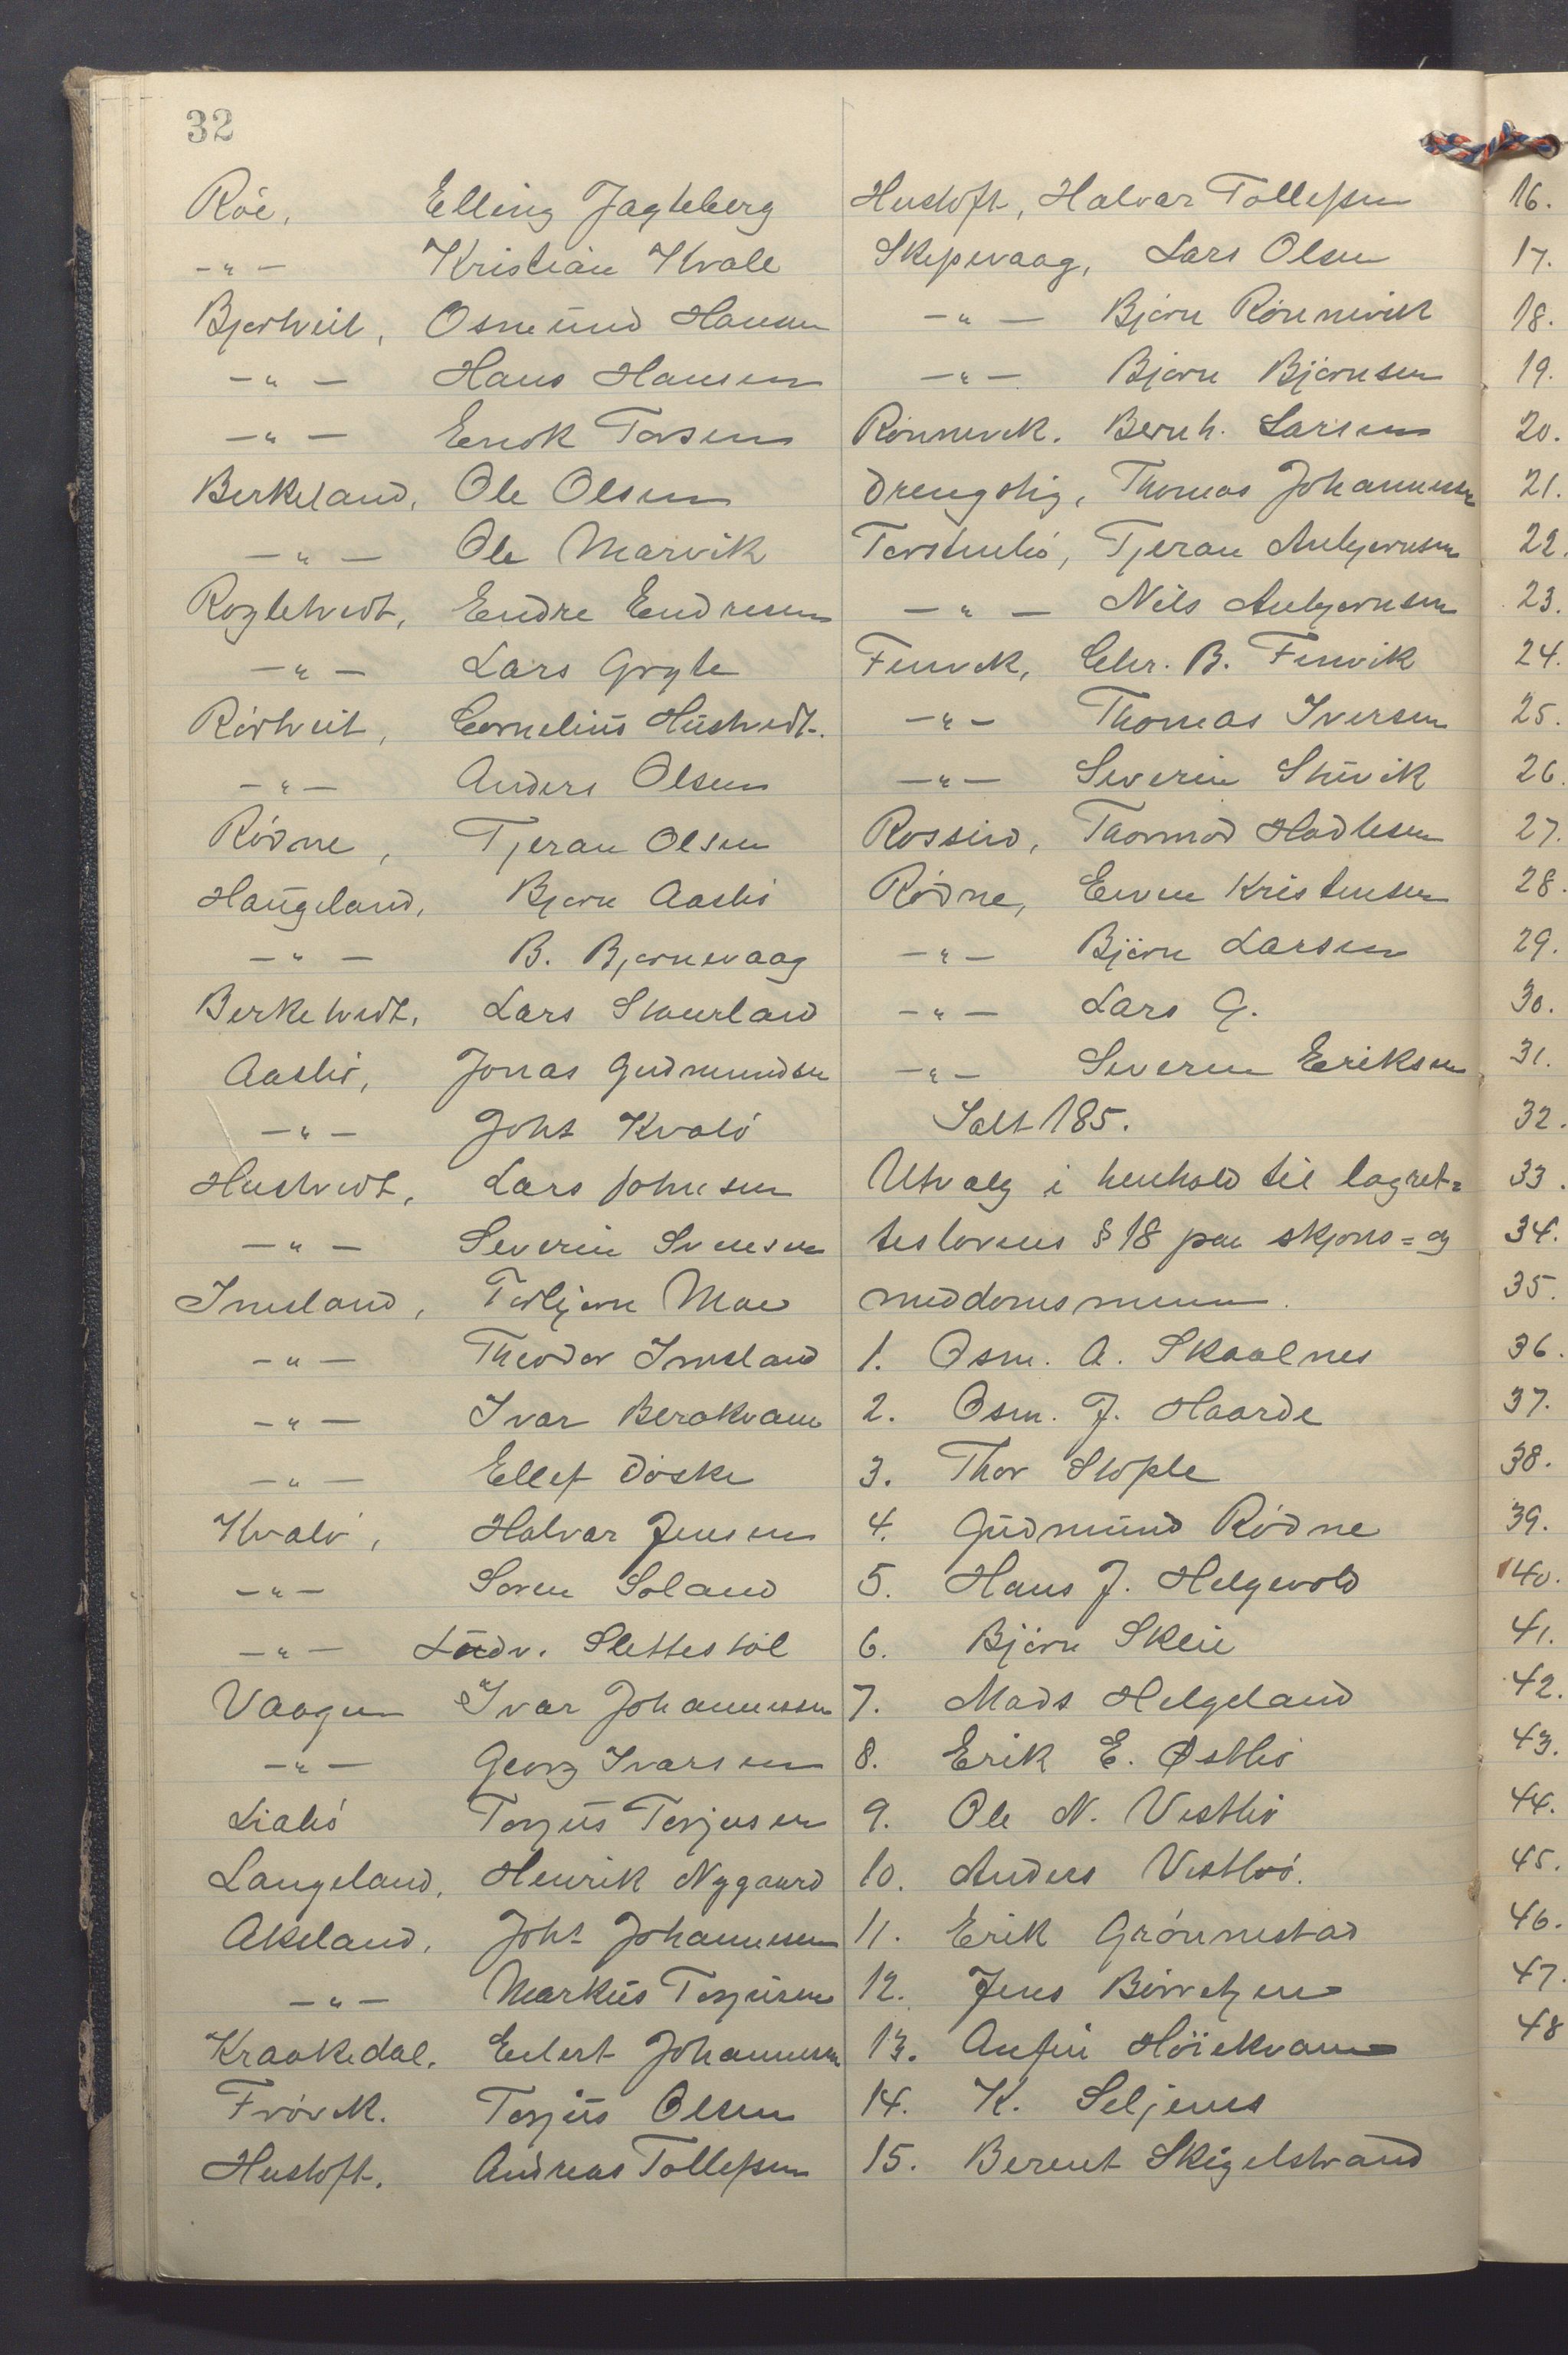 32
Röe, Elling Jagleberg
-"- Kristian Kvale
Bjortveit, Osmund Hansen
-"- Hans Hansen
-"- Enok Torsen
Berkeland, Ole Olsen
-"- Ole Marvik
Roglehvedt, Endre Endresen
-"- Lars Gryte
Rörtveit, Cornelius Hustvedt.
-"- Anders Olsen
Rödne, Tjeran Olsen
Haugeland, Bjorn Aaslö
-"- B. Bjornevaag
Berkehvedt, Lars Staurland
Aaslö, Jonas Gudmundsen
-"- Johs Kvalö
Hustvedt, Lars Johnsen
-"- Severin Svensen
Imsland, Torbjorn Moe
-"- Theodor Imsland
-"- Ivar Berakvam
-"- Ellef Döske
Kvalö, Halvar Jensen
-"- Soren Soland
-"- Ludv. Slettestöl
Vaagen Ivar Johannessen
-"- Georg Ivarsen
Lialö Torjus Torjusen
Langeland, Henrik Nygaard
Akeland, Johs Johannesen
-"- Markus Torjusen
Kraakedal, Eilert Johannesen
Frövik. Torjus Olsen
Hustoft. Andreas Tollefsen
Hustoft, Halvar Tollefsen
Skipevaag, Lars Olsen
-"- Bjorn Rönnevik
-"- Bjorn Bjornsen
Rönnevik. Bernh. Larsen
Drengstig, Thomas Johannessen
Torsteinlö, Tjeran Anbjornsen
-"- Nils Anbjornsen
Finvik, Chr. B. Finvik
-"- Thomas Iversen
-"- Severin Stuvik
Rosseid, Thormod Hadlesen
Rödne, Eiven Kristensen
-"- Björn Larsen
-"- Lars G.
-"- Severin Eriksen
Ialt 185.
Utvalg i henhold til lagret=
teslovens § 18 paa skjöns= og
meddomsmenn.
1. Osm. A. Skaalnes
2. Osm. J. Haarde
3. Thor Stople
4. Gudmund Rödne
5. Hans J. Helgevold
6. Björn Skeie
7. Mads Helgeland
8. Erik E. Østbö
9. Ole N. Vestbö
10. Anders Vestbö.
11. Erik Grönnestad
12. Jens Börretzen
13. Anfin Höiekvam
14. K. Seljenes
15. Berent Skigelstrand
16.
17.
18.
19.
20.
21.
22.
23.
24.
25.
26.
27.
28.
29.
30.
31.
32.
33.
34.
35.
36.
37.
38.
39.
40.
41.
42.
43.
44.
45.
46.
47.
48